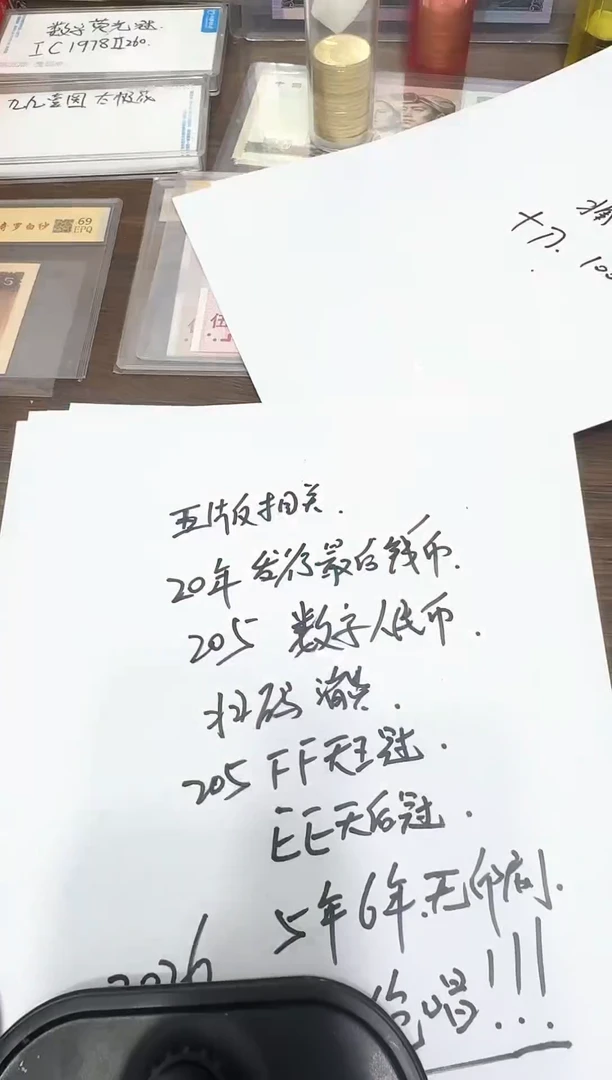 数字荧光冠.
IC1978Ⅱ260.
九九壹圆 太极
69
EPQ
伍
十刀.
100
五版相关.
20年发行最后钱币.
205 数字人民币.
扫码消失.
205 FF天王冠.
EE天后冠.
5年6年.无印刷.
2026
绝唱!!!